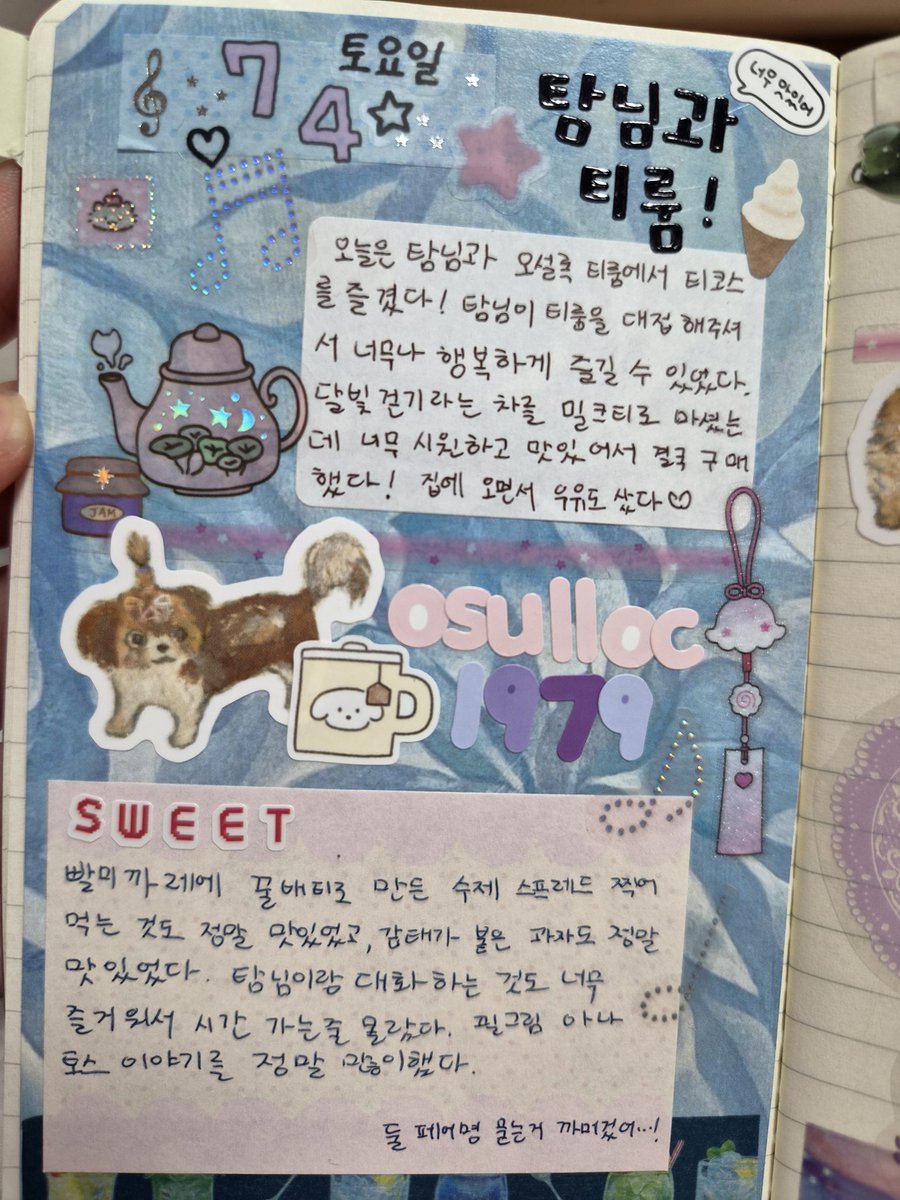 7 4
토요일
너무 맛있어
탐님과
티룸!
오늘은 탐님과 오설록 티룸에서 티코스
를 즐겼다! 탐님이 티룸을 대접 해주셔
서 너무나 행복하게 즐길 수 있었다.
달빛걷기라는 차를 밀크티로 마셨는
데 너무 시원하고 맛있어서 결국 구매
했다! 집에 오면서 우유도 샀다♡
JAM
osulloc
1979
SWEET
빨미까레에 꿀배티로 만든 수제 스프레드 찍어
먹는 것도 정말 맛있었고, 감태가 붙은 과자도 정말
맛있었다. 탐님이랑 대화하는 것도 너무
즐거워서 시간 가는줄 몰랐다. 필그림 아나
토스 이야기를 정말 많이했다.
둘 페어명 묻는거 까먹었어...!